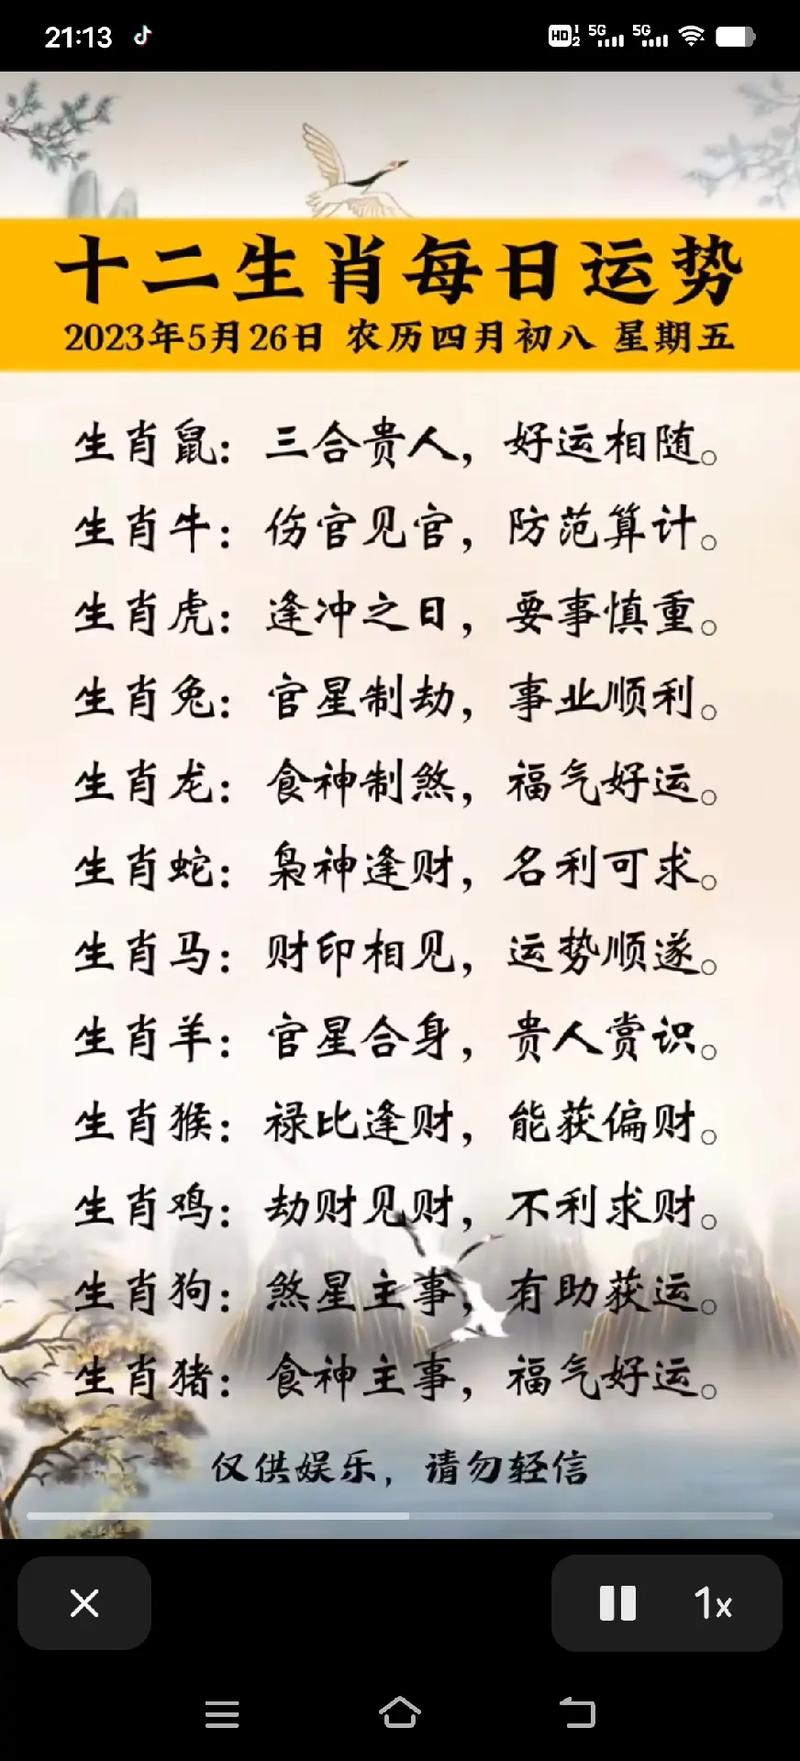 21:13
HD 1 2 5G 5G
十二生肖每日运势
2023年5月26日 农历四月初八 星期五
生肖鼠：三合贵人，好运相随。
生肖牛：伤官见官，防范算计。
生肖虎：逢冲之日，要事慎重。
生肖兔：官星制劫，事业顺利。
生肖龙：食神制煞，福气好运。
生肖蛇：枭神逢财，名利可求。
生肖马：财印相见，运势顺遂。
生肖羊：官星合身，贵人赏识。
生肖猴：禄比逢财，能获偏财。
生肖鸡：劫财见财，不利求财。
生肖狗：煞星主事，有助获运。
生肖猪：食神主事，福气好运。
仅供娱乐，请勿轻信
1x